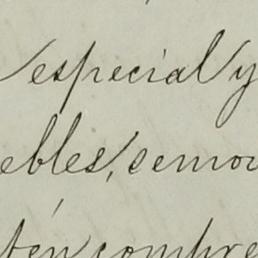 especial y
ebles, semov
tén compre